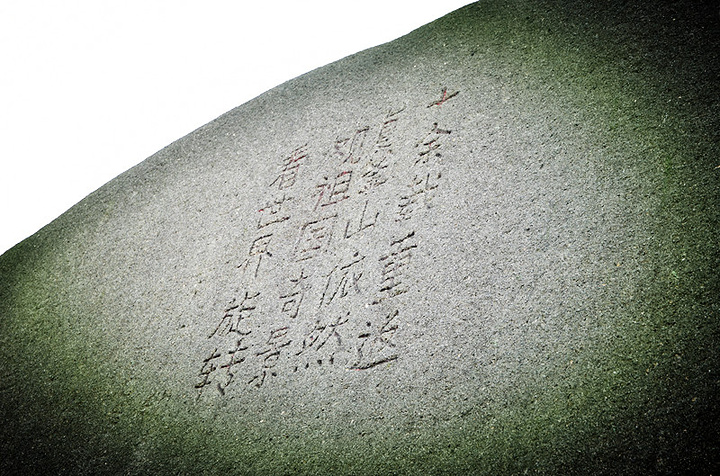 十余载重送
山依然
观祖国奇景
看世界旋转